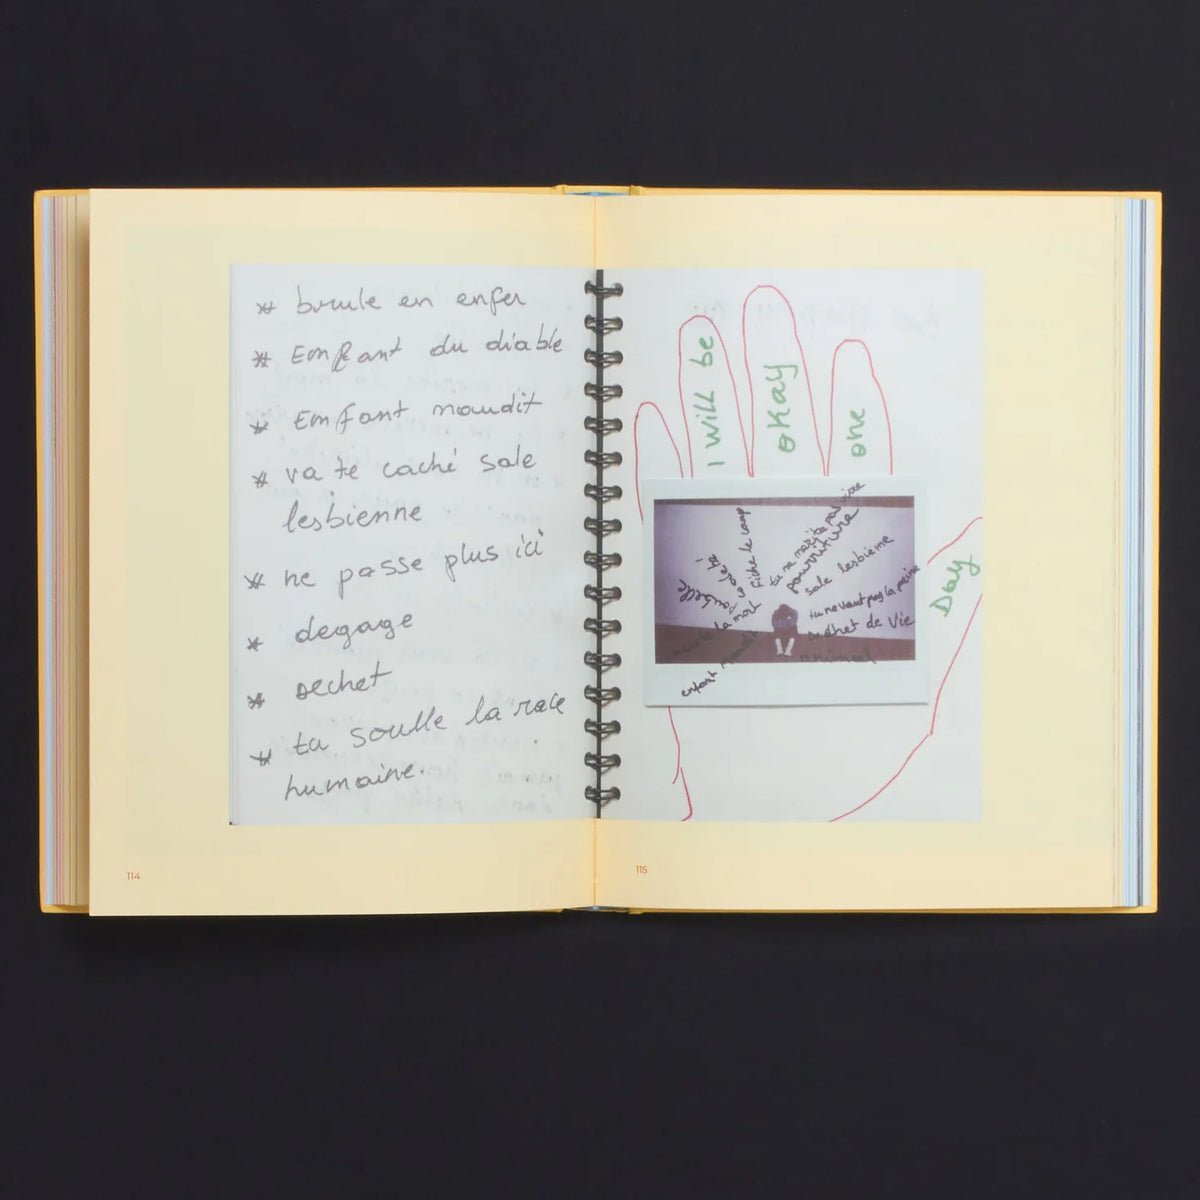 * brule en enfer
* Enfant du diable
* Enfant maudit
* va te caché sale
lesbienne
* ne passe plus ici
* degage
* dechet
* ta souille la race
humaine.
114
I will be
okay
one
Day
fiche le camp
tu ne merite pas vivre
pourriture
sale lesbienne
tu ne vaut pas la peine
dechet de vie
animal
poubelle
la mort
enfant maudit
115